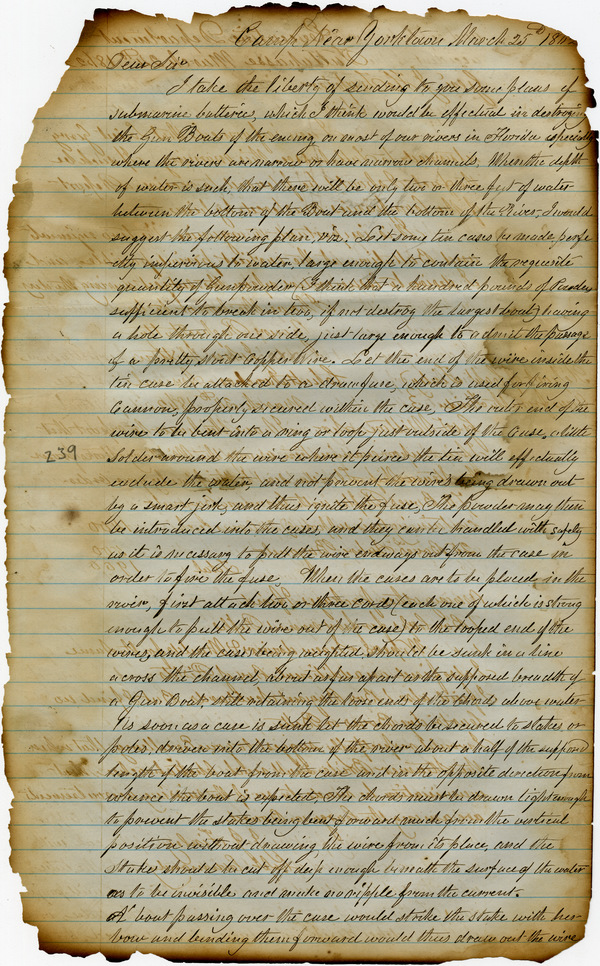 Camp Near Yorktown March 25th 186
Dear Sir
I take the liberty of sending to you some plans of
submarine batteries, which I think would be effectual in destroying
the Gun Boats of the enemy on most of our rivers in Florida especially
where the rivers are narrow or have narrow channels. When the depth
of water is such, that there will be only two or three feet of water
between the bottom of the Boat and the bottom of the River, I would
suggest the following plan, viz. Let some tin cases be made perfe
ctly impervious to water, large enough to contain the requisite
quantity of Gunpowder (I think that a hundred pounds of Powder
sufficient to break in two, if not destroy the largest boat) having
a hole through one side, just large enough to admit the passage
of a pretty stout Copper Wire. Let the end of the wire inside the
tin case be attached to a drawfuse, which is used for firing
Cannon, properly secured within the case. The outer end of the
wire to be bent into a ring or loop just outside of the Case, a little
239
Solder around the wire where it pierces the tin will effectually
exclude the water, and not prevent the wires being drawn out
by a smart jerk, and thus ignite the fuse. The powder may then
be introduced into the cases and they can be handled with safety
as it is necessary to pull the wire endways out from the case in
order to fire the fuse. When the cases are to be placed in the
river, first attach two or three cords (each one of which is strong
enough to pull the wire out of the case) to the looped end of the
wires, and the case being weighted, should be sunk in a line
across the channel, about as far apart as the supposed breadth of
a Gun Boat, still retaining the loose ends of the Chords above water
As soon as a case is sunk let the chords be secured to stakes or
poles, driven into the bottom of the river about a half of the supposed
length of the boat from the case and in the opposite direction from
whence the boat is expected. The chords must be drawn tight enough
to prevent the stakes being bent forward much from the vertical
position without drawing the wire from its place, and the
Stake should be cut off deep enough beneath the surface of the water
as to be invisible and make no ripple from the current.
A boat passing over the case would strike the stake with her
bow and bending them forward would thus draw out the wire